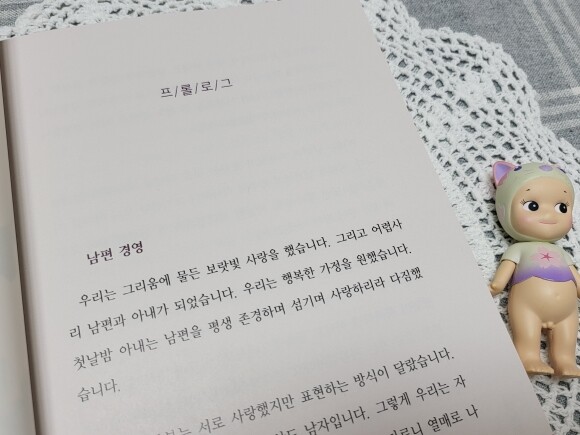 프/롤/로/그
남편 경영
우리는 그리움에 물든 보랏빛 사랑을 했습니다. 그리고 어렵사
리 남편과 아내가 되었습니다. 우리는 행복한 가정을 원했습니다.
첫날밤 아내는 남편을 평생 존경하며 섬기며 사랑하리라 다짐했
습니다.
서로 사랑했지만 표현하는 방식이 달랐습니다.
남자입니다. 그렇게 우리는 자
열매로 나